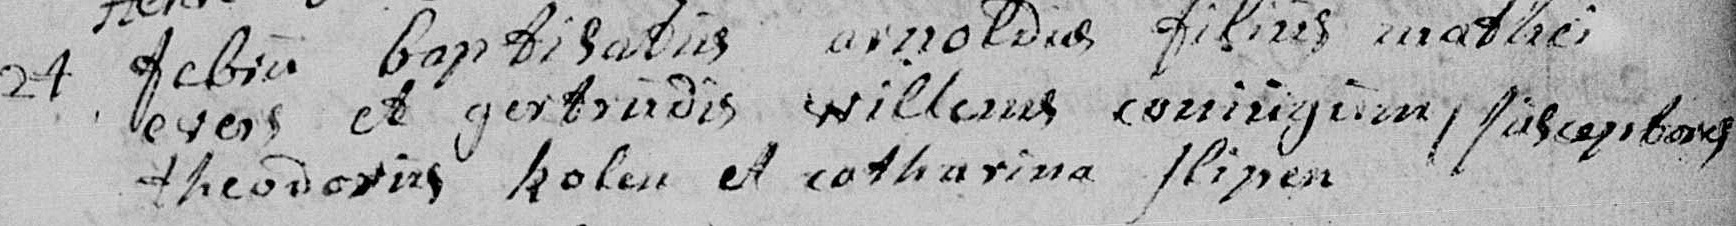 24 febru baptisatus arnoldus filius mathei
evers et gertrudis willems coniugum / susceptores
theodorus kolen et catharina slipen